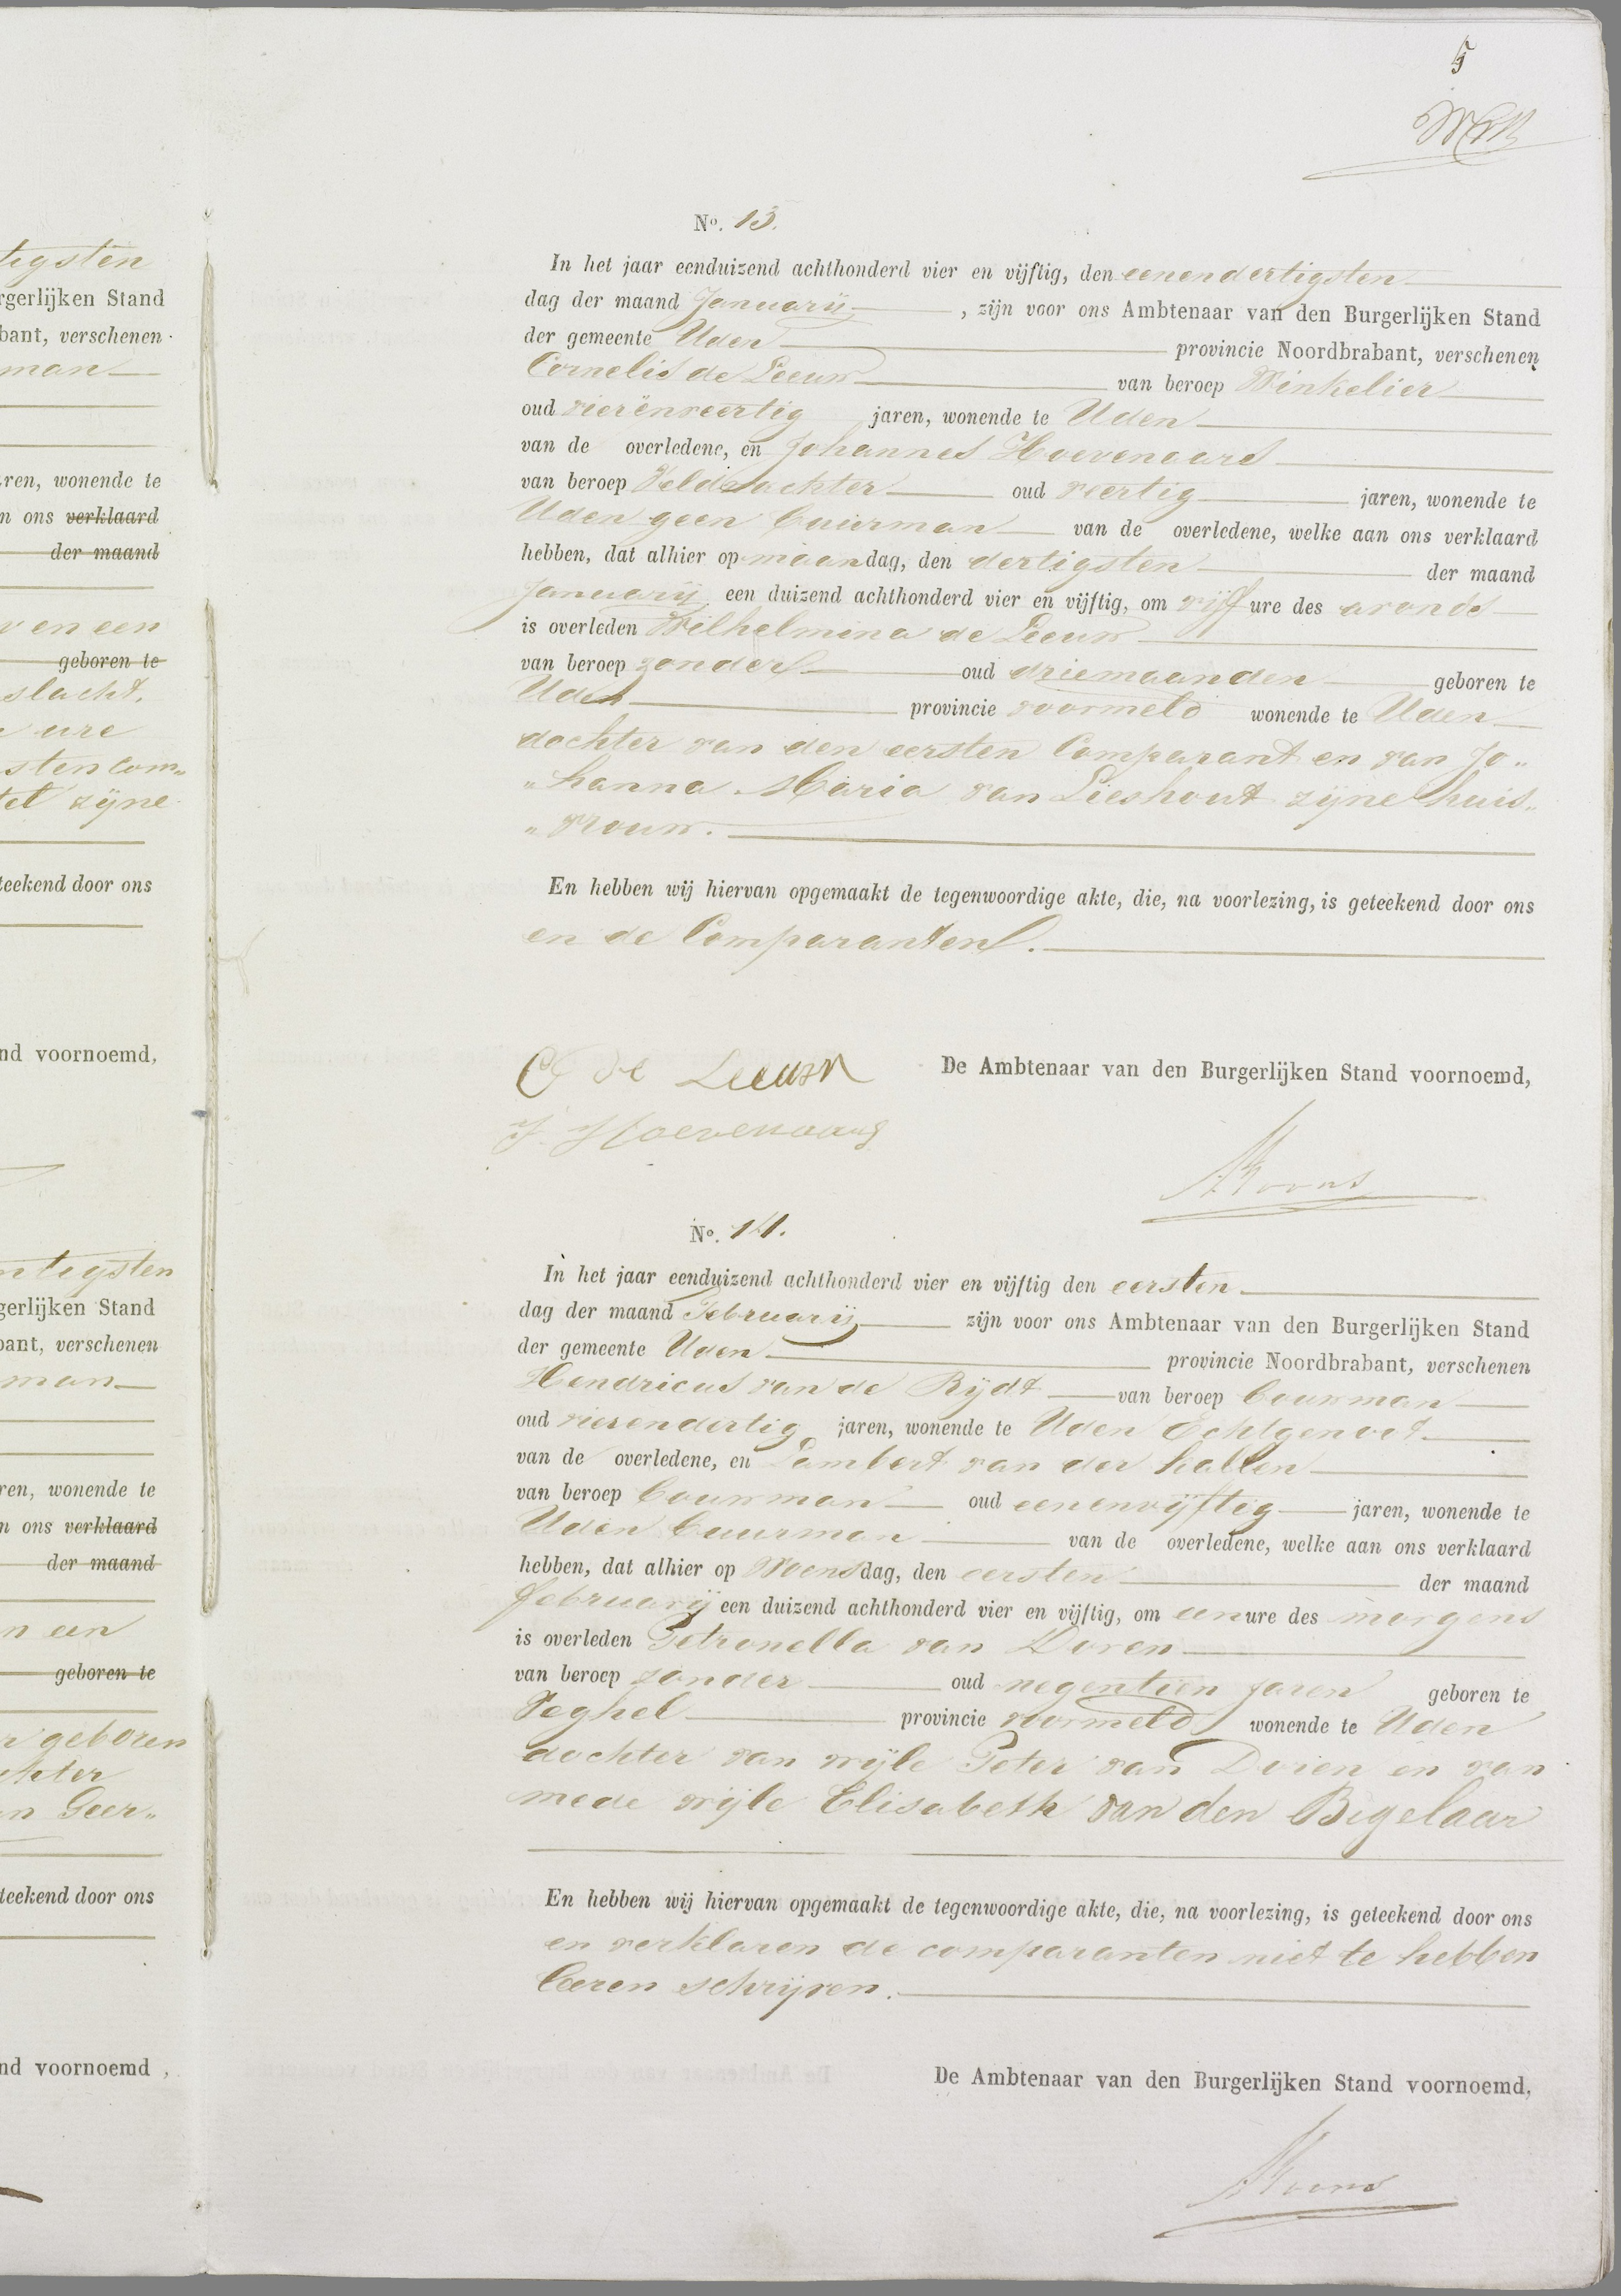 tigsten
rgerlijken Stand
bant, verschenen
man
ren, wonende te
n ons verklaard
der maand
en een
geboren te
slacht.
ure
sten com„
tel zijne
teekend door ons
nd voornoemd,
ntigsten
gerlijken Stand
bant, verschenen
man
ren, wonende te
n ons verklaard
der maand
n een
geboren te
geboren
chter
n Geer„
teekend door ons
nd voornoemd,
5
No. 13.
In het jaar eenduizend achthonderd vier en vijftig, den eenendertigsten
dag der maand Januarij, zijn voor ons Ambtenaar van den Burgerlijken Stand
der gemeente Uden provincie Noordbrabant, verschenen
Cornelis de Leeuw van beroep Winkelier
oud vierënveertig jaren, wonende te Uden
van de overledene, en Johannes Hoevenaars
van beroep Veldwachter oud veertig jaren, wonende te
Uden geen buurman van de overledene, welke aan ons verklaard
hebben, dat alhier op maandag, den dertigsten der maand
Januarij een duizend achthonderd vier en vijftig, om vijf ure des avonds
is overleden Wilhelmina de Leeuw
van beroep zonder oud driemaanden geboren te
Uden provincie voormeld wonende te Uden
dochter van den eersten Comparant en van Jo„
„hanna Maria van Lieshout zijne huis„
„vrouw.
En hebben wij hiervan opgemaakt de tegenwoordige akte, die, na voorlezing, is geteekend door ons
en de Comparanten.
C de Leeuw
De Ambtenaar van den Burgerlijken Stand voornoemd,
J. Hoevenaars
No. 14.
In het jaar eenduizend achthonderd vier en vijftig den eersten
dag der maand Februarij zijn voor ons Ambtenaar van den Burgerlijken Stand
der gemeente Uden provincie Noordbrabant, verschenen
Hendricus van de Rijdt van beroep bouwman
oud vierendertig jaren, wonende te Uden Echtgenoot
van de overledene, en Lambert van der hallen
van beroep bouwman oud eenenvijftig jaren, wonende te
Uden buurman van de overledene, welke aan ons verklaard
hebben, dat alhier op Woensdag, den eersten der maand
februarij een duizend achthonderd vier en vijftig, om een ure des morgens
is overleden Petronella van Doren
van beroep zonder oud negentien jaren geboren te
Veghel provincie voormeld wonende te Uden
dochter van wijle Peter van Doren en van
mede wijle Elisabeth van den Bigelaar
En hebben wij hiervan opgemaakt de tegenwoordige akte, die, na voorlezing, is geteekend door ons
en verklaren de comparanten niet te hebben
leeren schrijven.
De Ambtenaar van den Burgerlijken Stand voornoemd,